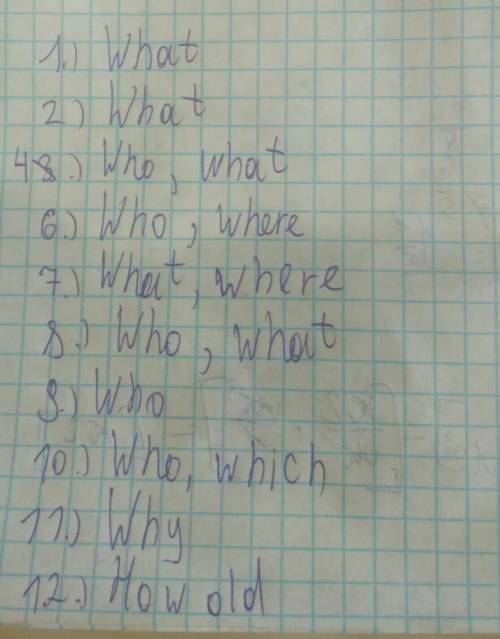 1.) What
2.) What
48.) Who, what
6.) Who, where
7.) What, where
8.) Who, what
9.) Who
10.) Who, which
11.) Why
12.) How old